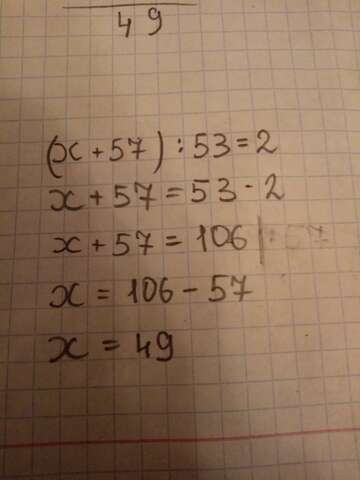 49
(x + 57) : 53 = 2
x + 57 = 53 · 2
x + 57 = 106 | : 57
x = 106 - 57
x = 49